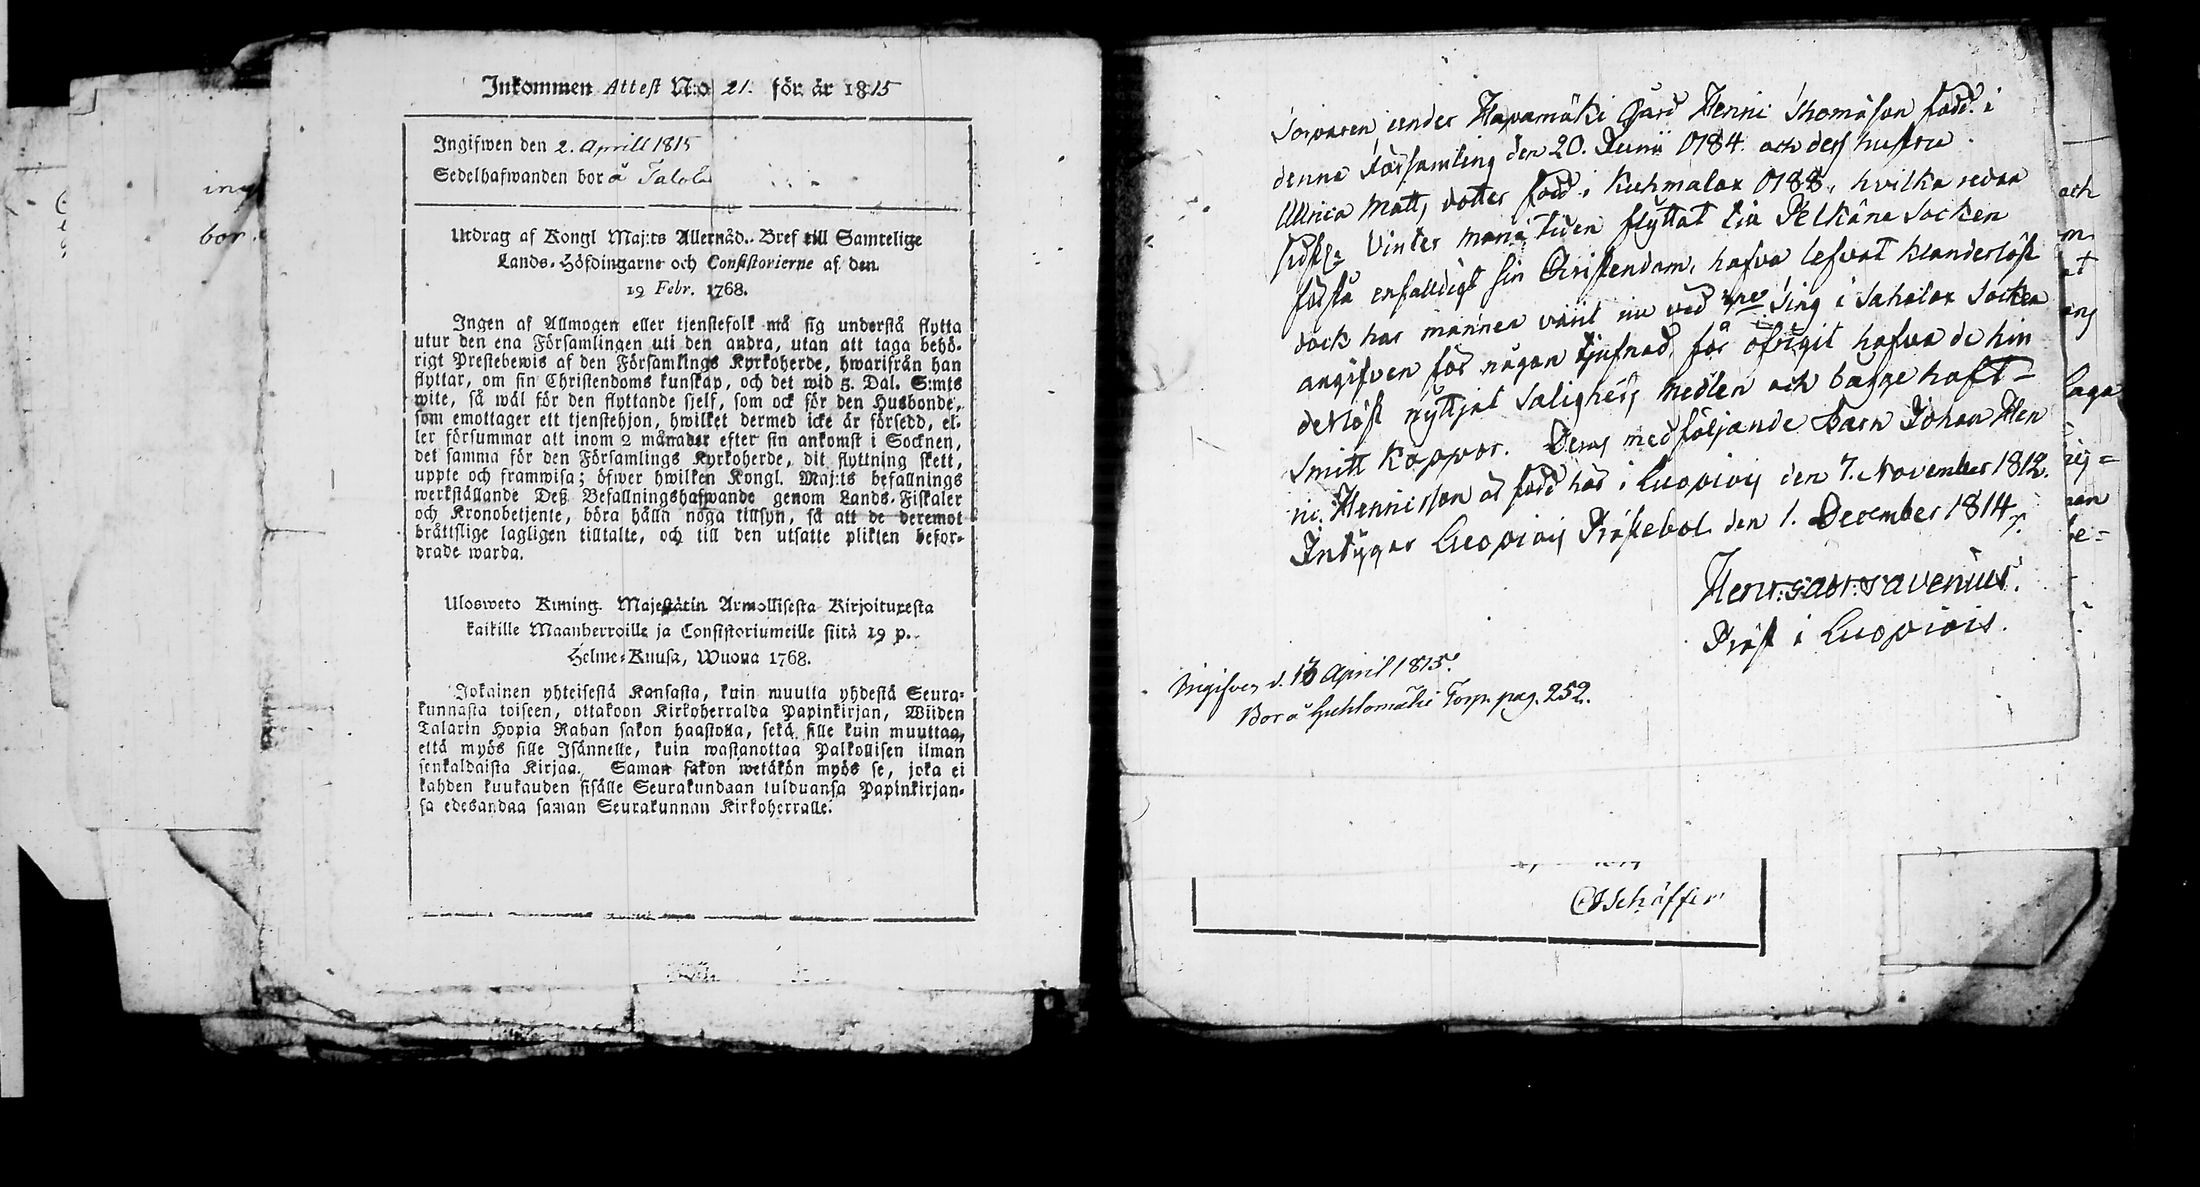 Inkommen Attest N:o 21. för år 1815
Ingifwen den 2. Aprill 1815
Sedelhafwanden bor å Talola
Utdrag af Kongl Maj:ts Allernåd.. Bref till Samtelige
Lands-Höfdingarne och Consistorierne af den
19 Febr. 1768.
Ingen af Allmogen eller tjenstefolk må sig understå flytta
utur den ena Församlingen uti den andra, utan att taga behö-
rigt Prestebewis af den Församlings Kyrkoherde, hwarifrån han
flyttar, om sin Christendoms kunskap, och det wid 5. Dal. S:mts
wite, så wäl för den flyttande sjelf, som ock för den Husbonde,
som emottager ett tjenstehjon, hwilket dermed icke är försedd, el-
ler försummar att inom 2 månader efter sin ankomst i Socknen,
det samma för den Församlings Kyrkoherde, dit flyttning skett,
uppte och framwisa; öfwer hwilken Kongl. Maj:ts befallnings
werkställande Deß Befallningshafwande genom Lands-Fiskaler
och Kronobetjente, böra hålla noga tillsyn, så att de deremot
bråttslige lagligen tilltalte, och till den utsatte plikten befor-
drade warda.
Ulosweto Kuning. Majestätin Armollisesta Kirjoituresta
kaikille Maanherroille ja Consistoriumeille siitä 19 p.
Helme-Kuusa, Wuona 1768.
Jokainen yhteisestä Kansasta, kuin muutta yhdestä Seura-
kunnasta toiseen, ottakoon Kirkoherralda Papinkirjan, Wiiden
Talarin Hopia Rahan sakon haastolla, sekä sille kuin muuttaa,
että myös sille Isännelle, kuin wastanottaa Palkollisen ilman
senkaldaista Kirjaa. Saman sakon wetäkön myös se, joka ei
kahden kuukauden sisälle Seurakundaan tulduansa Papinkirjan-
sa edesandaa saman Seurakunnan Kirkoherralle.
ing
bor
Torparen under Hapamäki Gård Henric Thomasson född i
denna Församling den 20. Junii 1784. och dess hustru
Ulrica Matts dotter född i Kuhmalax 1788, hvilka redan
sidstl: Vinter måne tiden flyttat till Pelkäne Socken
förstå enfalldigt sin Christendom, hafva lefvat klanderlöst
dock har mannen varit nu vid Ting i Sahalax Socken
angifven för någon tjufnad, för öfrigit hafva de hin
derlöst nyttjat Salighets medlen och bägge haft
Smitt Koppor. Deras medföljande Barn Johan Hen
ric Henricsson är född här i Luopiois den 7. November 1812.
Intygar Luopiois Prästebol den 1. December 1814.
Henr: Gabr: Favenius.
Präst i Luopiois.
Ingifven d. 13 April 1815.
Bor å Huhtomäki Torp. pag. 252.
och
m
at
ens
Laga
rig=
nan
be=
Schäffer